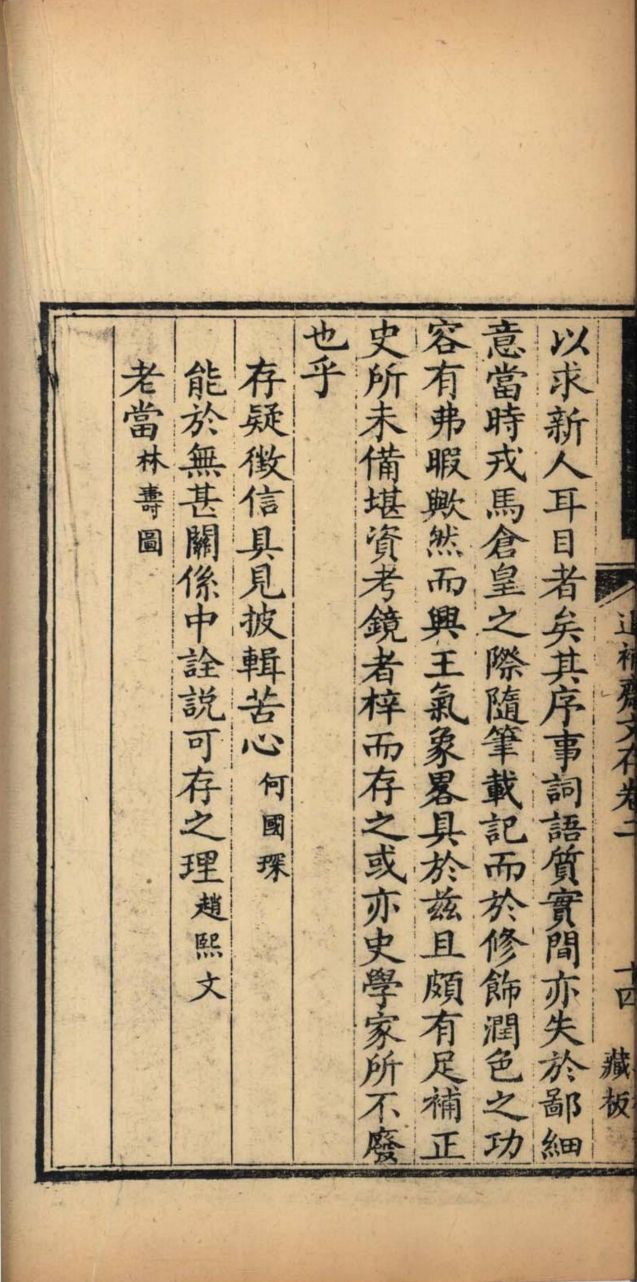 以求新人耳目者矣其序事詞語質實間亦失於鄙細
意當時戎馬倉皇之際隨筆載記而於修飾潤色之功
容有弗暇歟然而興王氣象畧具於茲且頗有足補正
史所未備堪資考鏡者梓而存之或亦史學家所不廢
也乎
存疑徵信具見披輯苦心何國琛
能於無甚關係中詮說可存之理趙熙文
老當林壽圖
補齋文存卷二
十四
藏板